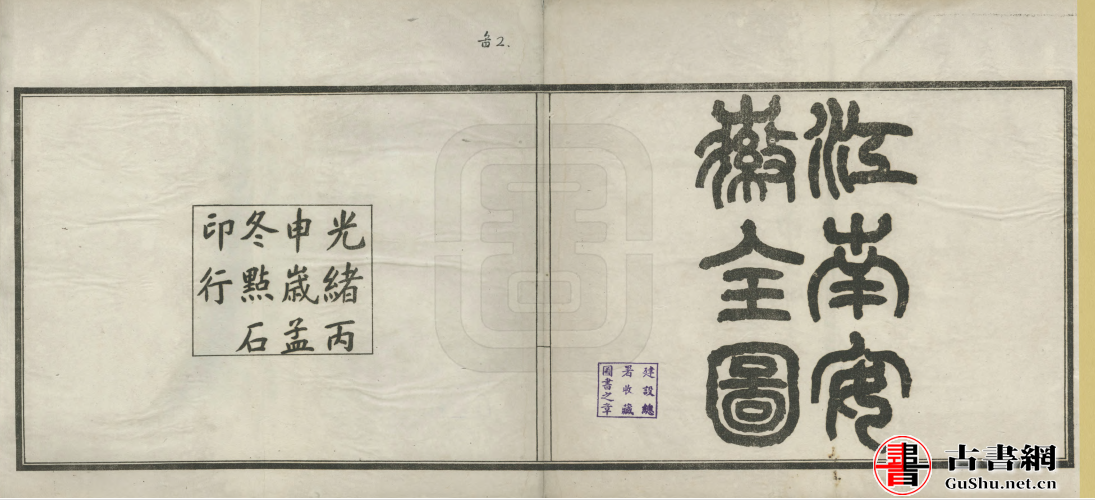 江南安
徽全圖
光緒丙
申歲孟
冬點石
印行
建設總
署收藏
圖書之章
2.
書
古書網
GuShu.net.cn